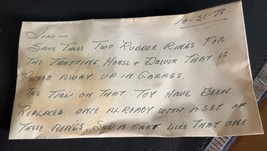 10-28-78
SIRS -
SAVE THESE TWO RUBBER RINGS FOR
THE TROTTING HORSE & DRIVER THAT IS
PACKED AWAY UP IN GARAGE.
THE TIRES ON THAT TOY HAVE BEEN
REPLACED ONCE ALREADY WITH A SET OF
THESE RINGS. SAW A CART LIKE THAT ONE